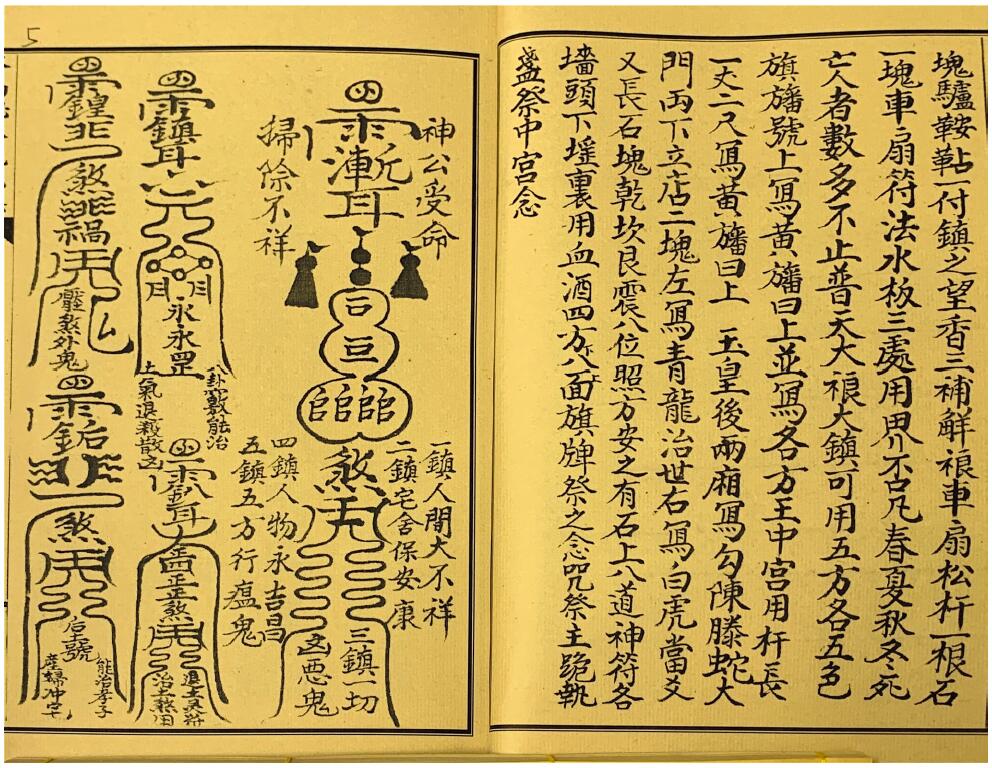 塊驢鞍鞊一付鎮之望香三補鮮裉車扇松杆一根石
一塊車扇符法水板三處用畀不古凡春夏秋冬死
亡人者數多不止普天大裉大鎮可用五方各五色
旗旛號上寫黃旛曰上並寫各方王中宮用杆長
一丈二尺寫黃旛曰上 玉皇後兩廂寫勾陳滕蛇大
門両下立店二塊左寫青龍治世右寫白虎當爻
又長石塊乾坎艮震八位照方安之有石上八道神符各
墻頭下墔裏用血酒四方八面旗牌祭之念咒祭主跪執
盞祭中宮念
神公受命
掃除不祥
漸耳
煞
一鎮人間大不祥
二鎮宅舍保安康
三鎮一切
凶惡鬼
四鎮人物永吉昌
五鎮五方行瘟鬼
鎮耳
永永罡
卦煞數能治
土氣退殺散凶
耳
正正煞
治土煞用
煌非
煞
禍
壓煞外鬼
煞
后土號
能治孝子
產婦冲字
5